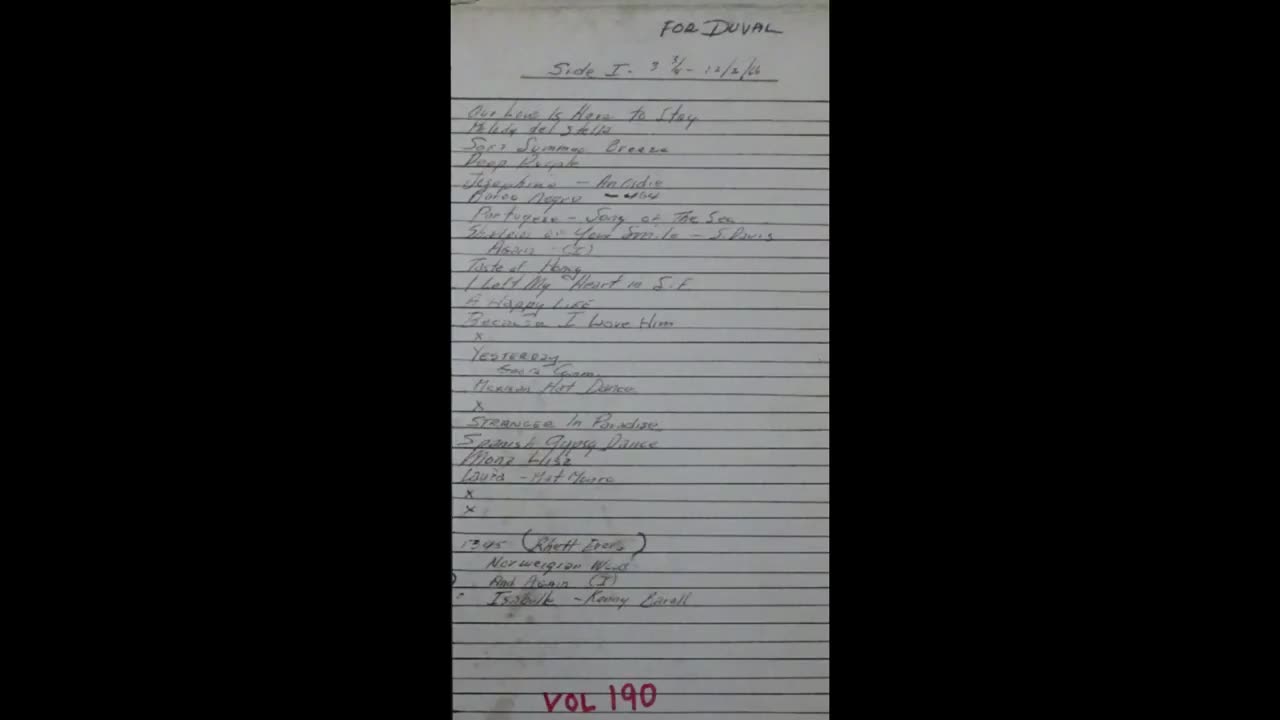 FOR DUVAL
Side I - 3 3/4 - 12/2/66
Our Love Is Here to Stay
Soft Summer Breeze
Deep Purple
Josephine -
Portugese - Song of The Sea
Shadow of Your Smile - S. Davis
Again (I)
Taste of Honey
I Left My Heart in S.F.
A Happy LIFE
Because I Love Him
x
YESTERDAY
Mexican Hat Dance
x
STRANGER In Paradise
Spanish Gypsy Dance
Mona Lisa
Laura - Mat Munro
x
x
1345 (Rhett Evers)
Norweigian Wood
And Again (I)
Isabella - Kenny Barell
VOL 190